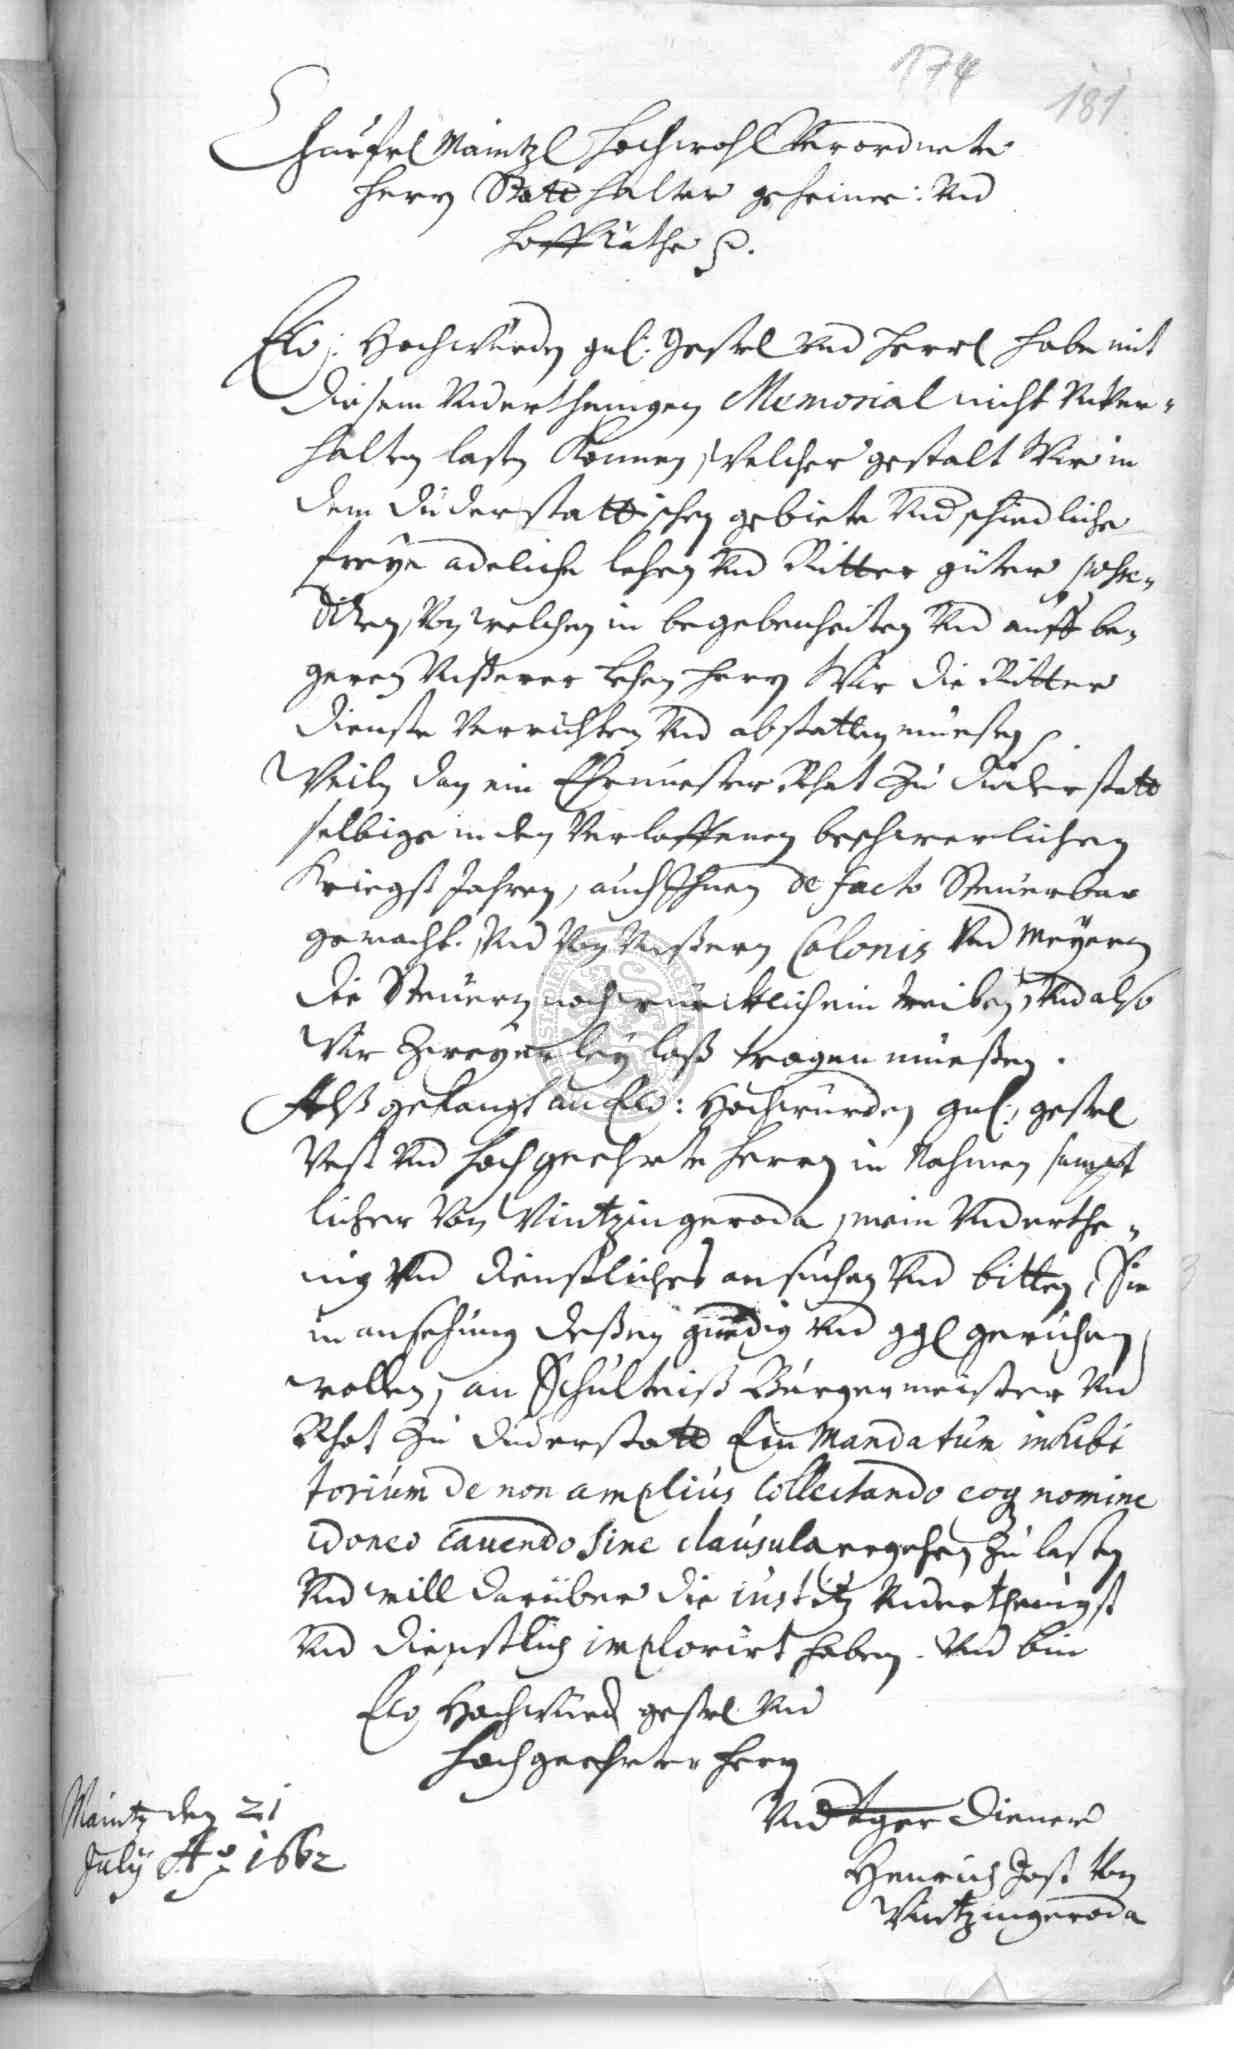 174
181
Churfrl Maintzl Hochwohl Verordnete
Herrn Statthalter geheime: Vnd
Hoffräthe p.
Ew: Hochwürden gnl: gestrl Vnd Herrl habe mit
diesem Vnderthenigen Memorial nicht Vnver-
halten laßen können, Welcher gestalt Wir in
dem Duderstattischen gebiete Vnd
freye adeliche lehen Vnd Ritter güter
von welchen in begebenheiten Vnd auff be-
geren Vnßerer Lehen Herrn Wir die Ritter
dienste Verrichten Vnd abstatten müeßen
Weiln dan ein Ehrnuester Rhat zu Duderstatt
selbige in den Verloffenen beschwerlichen
Kriegß Jahren, auch Ihnen de facto Steuerbar
gemacht. Vnd Von Vnßern Colonis Vnd Meyern
die Steuern noch würcklich ein treiben, Vnd also
Wir Zweyerley last tragen müeßen.
Alß gelangt an Ew: Hochwürden gnl:, gestrl
Vest Vnd Hochgeehrte Herrn in Nahmen sampt
licher Von Wintzingeroda, mein Vnderthe-
nig Vnd dienstliches ansuchen Vnd bitten, Sie
in ansehung deßen gnedig Vnd ggl geruhen
wollen, an Schultheiß Burgermeister Vnd
Rhat zu Duderstatt Ein Mandatum inhibi
torium de non amplius Collectando eoq nomine
idoneo cavendo sine clausula ergehen zu laßen
Vnd will darüber die iustitz Vnderthenigst
Vnd dienstlich implorirt haben. Vnd bin
Ew Hochwürd gestrl Vnd
Hochgeehrter Herrn
Maintz den 21
July Ao 1662
Vndtger diener
Henrich Jost Von
Wintzingeroda